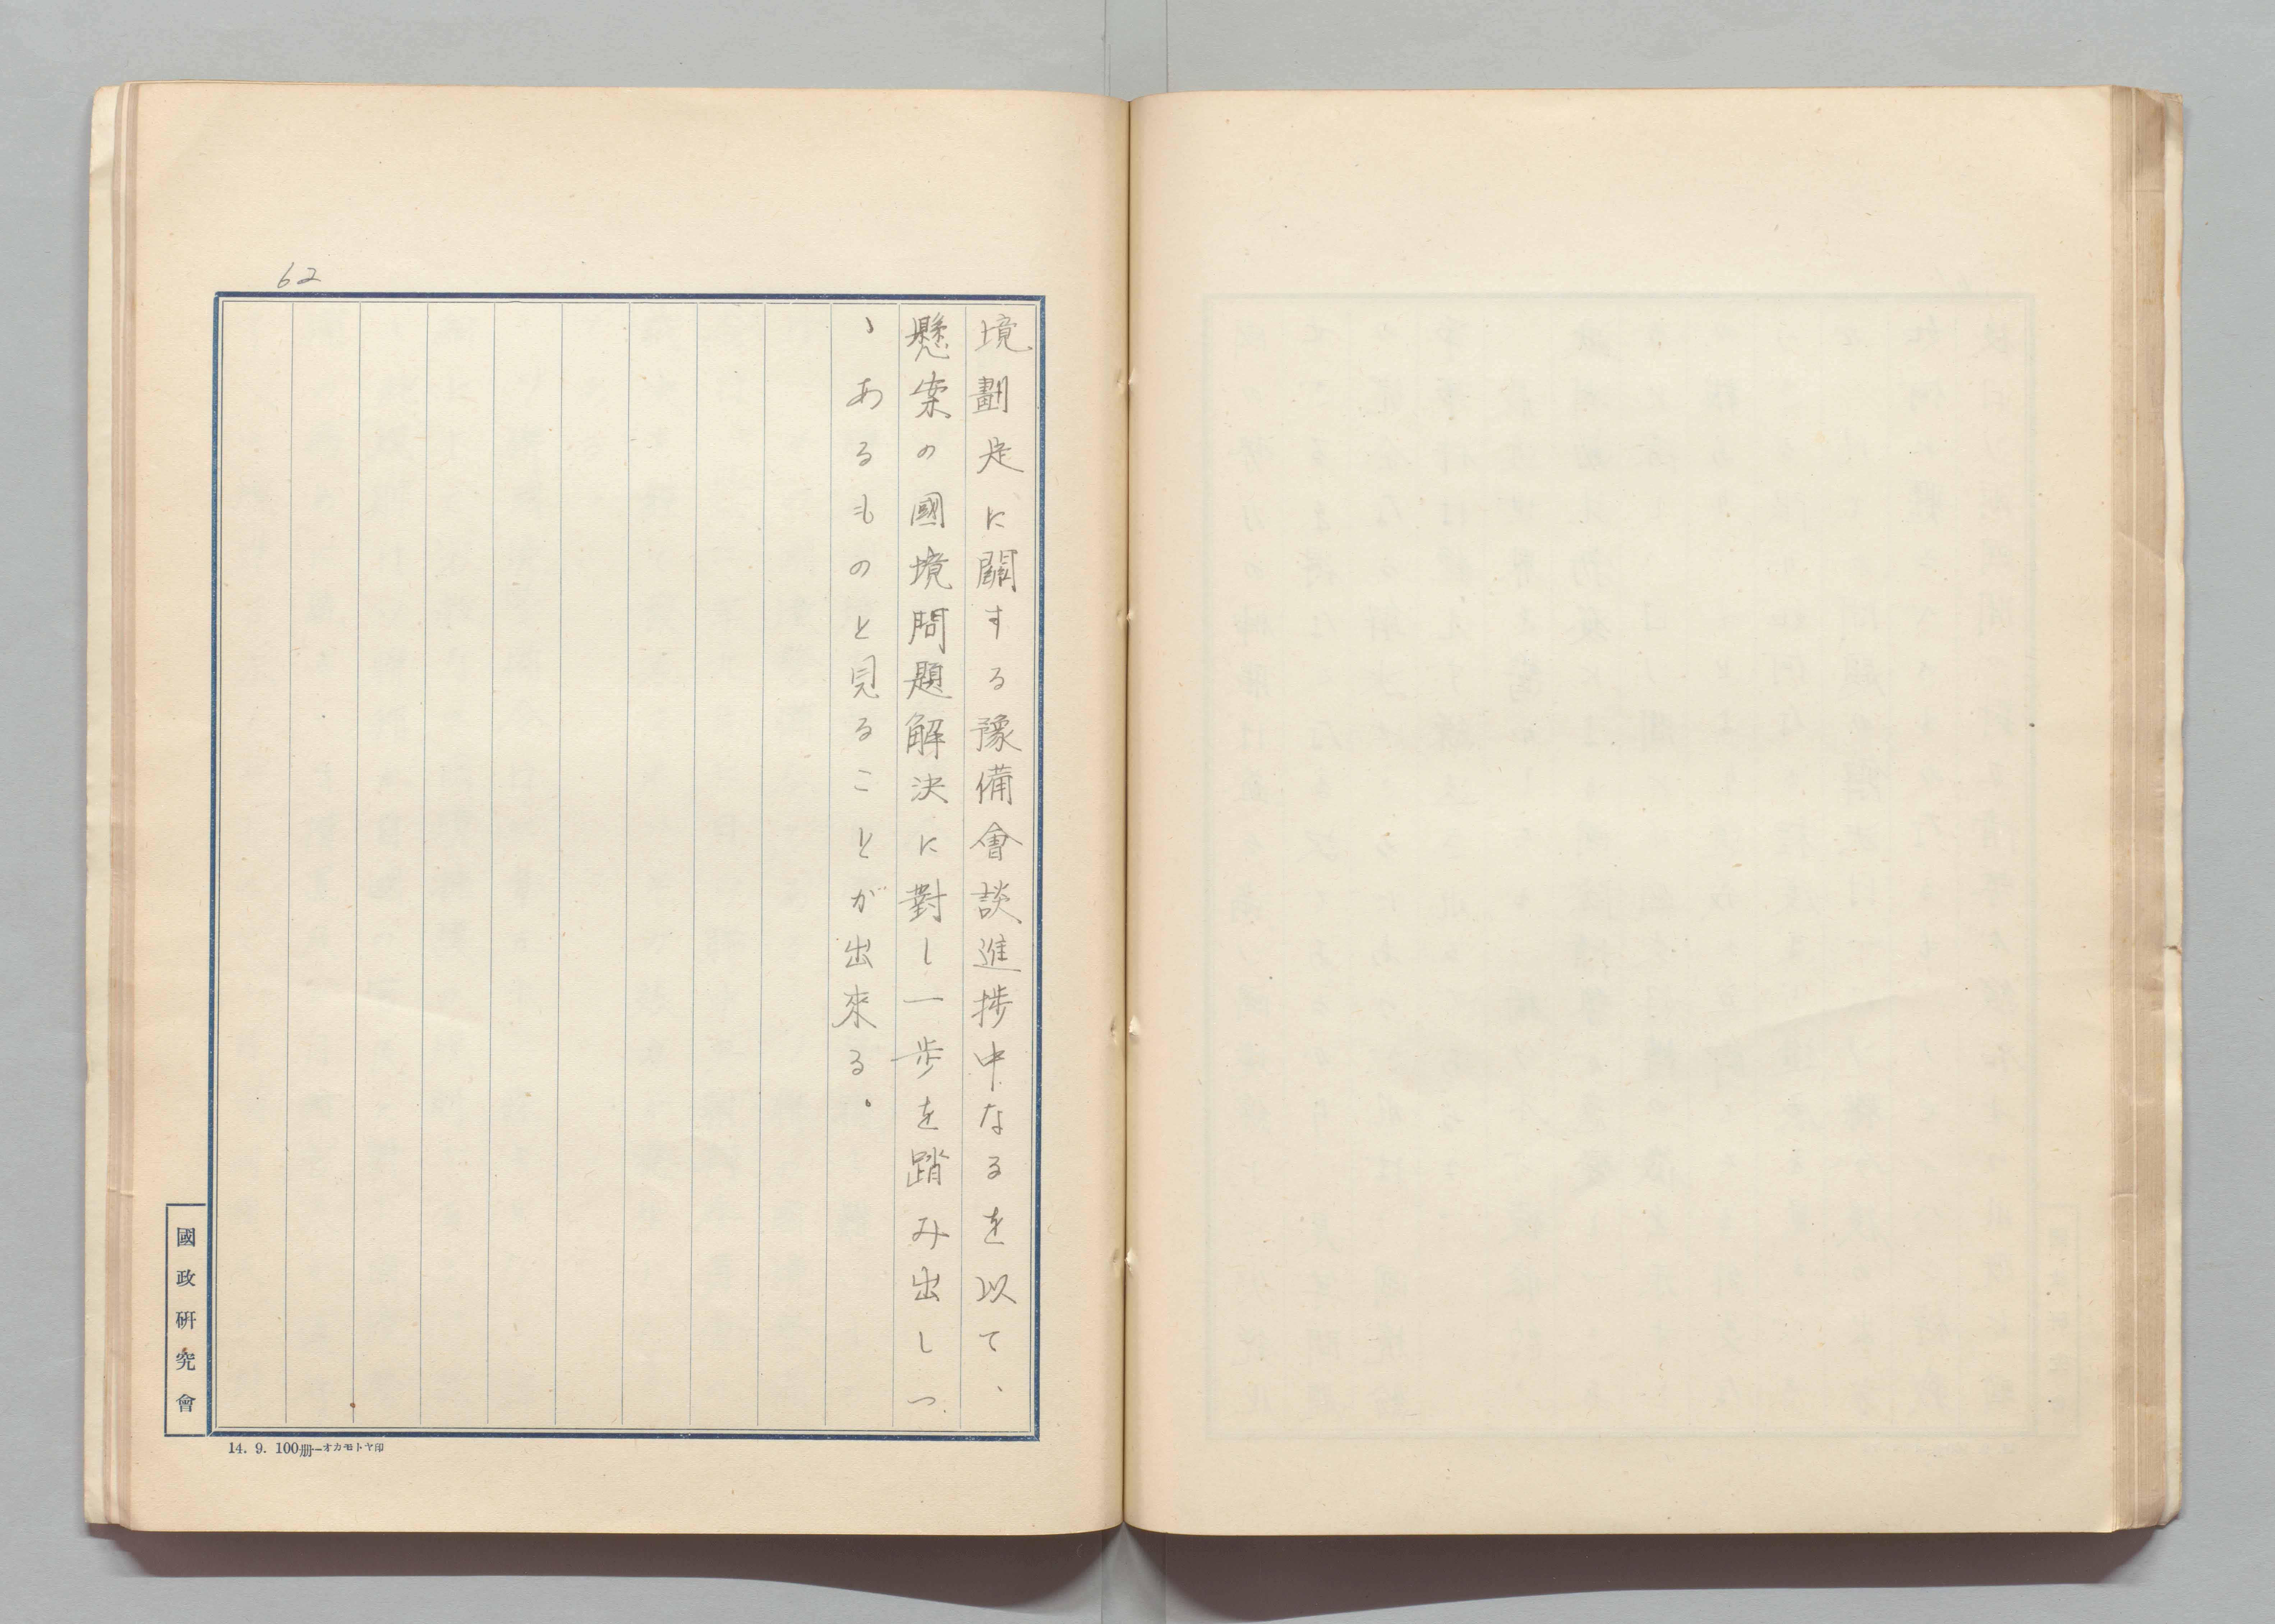 62
境劃定に關する豫備會談進捗中なるを以て、
懸案の國境問題解決に對し一歩を踏み出しつ
ゝあるものと見ることが出來る。
國政研究會
14. 9. 100册—オカモトヤ印